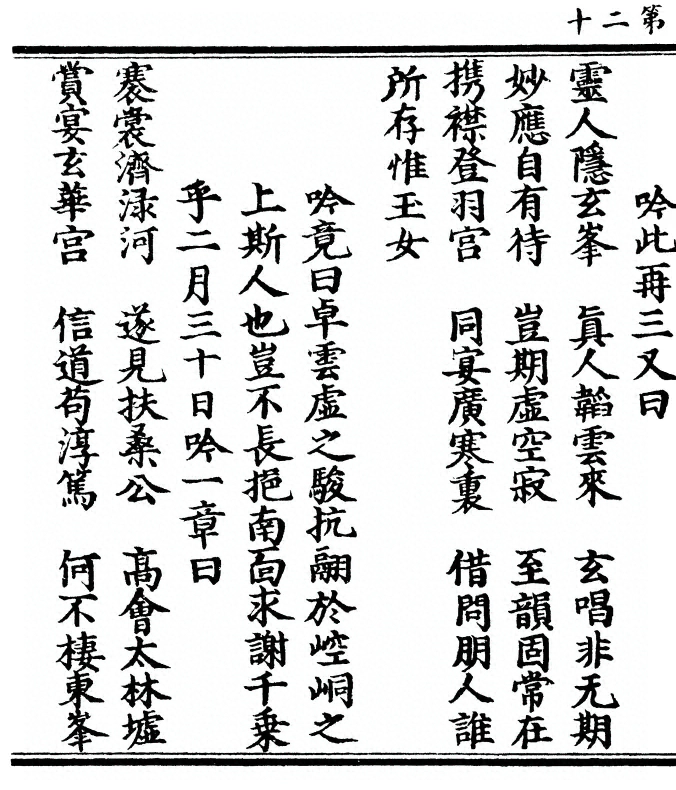 第二十
吟此再三又曰
靈人隱玄峯　真人韜雲來　玄唱非无期
妙應自有待　豈期虛空寂　至韻固常在
携襟登羽宫　同宴廣寒裏　借問朋人誰
所存惟玉女
吟竟曰卓雲虛之駿抗翮於崆峒之
上斯人也豈不長挹南面永謝千乗
乎二月三十日吟一章曰
褰裳濟渌河　遂見扶桑公　高會太林墟
賞宴玄華宫　信道苟淳篤　何不棲東峯